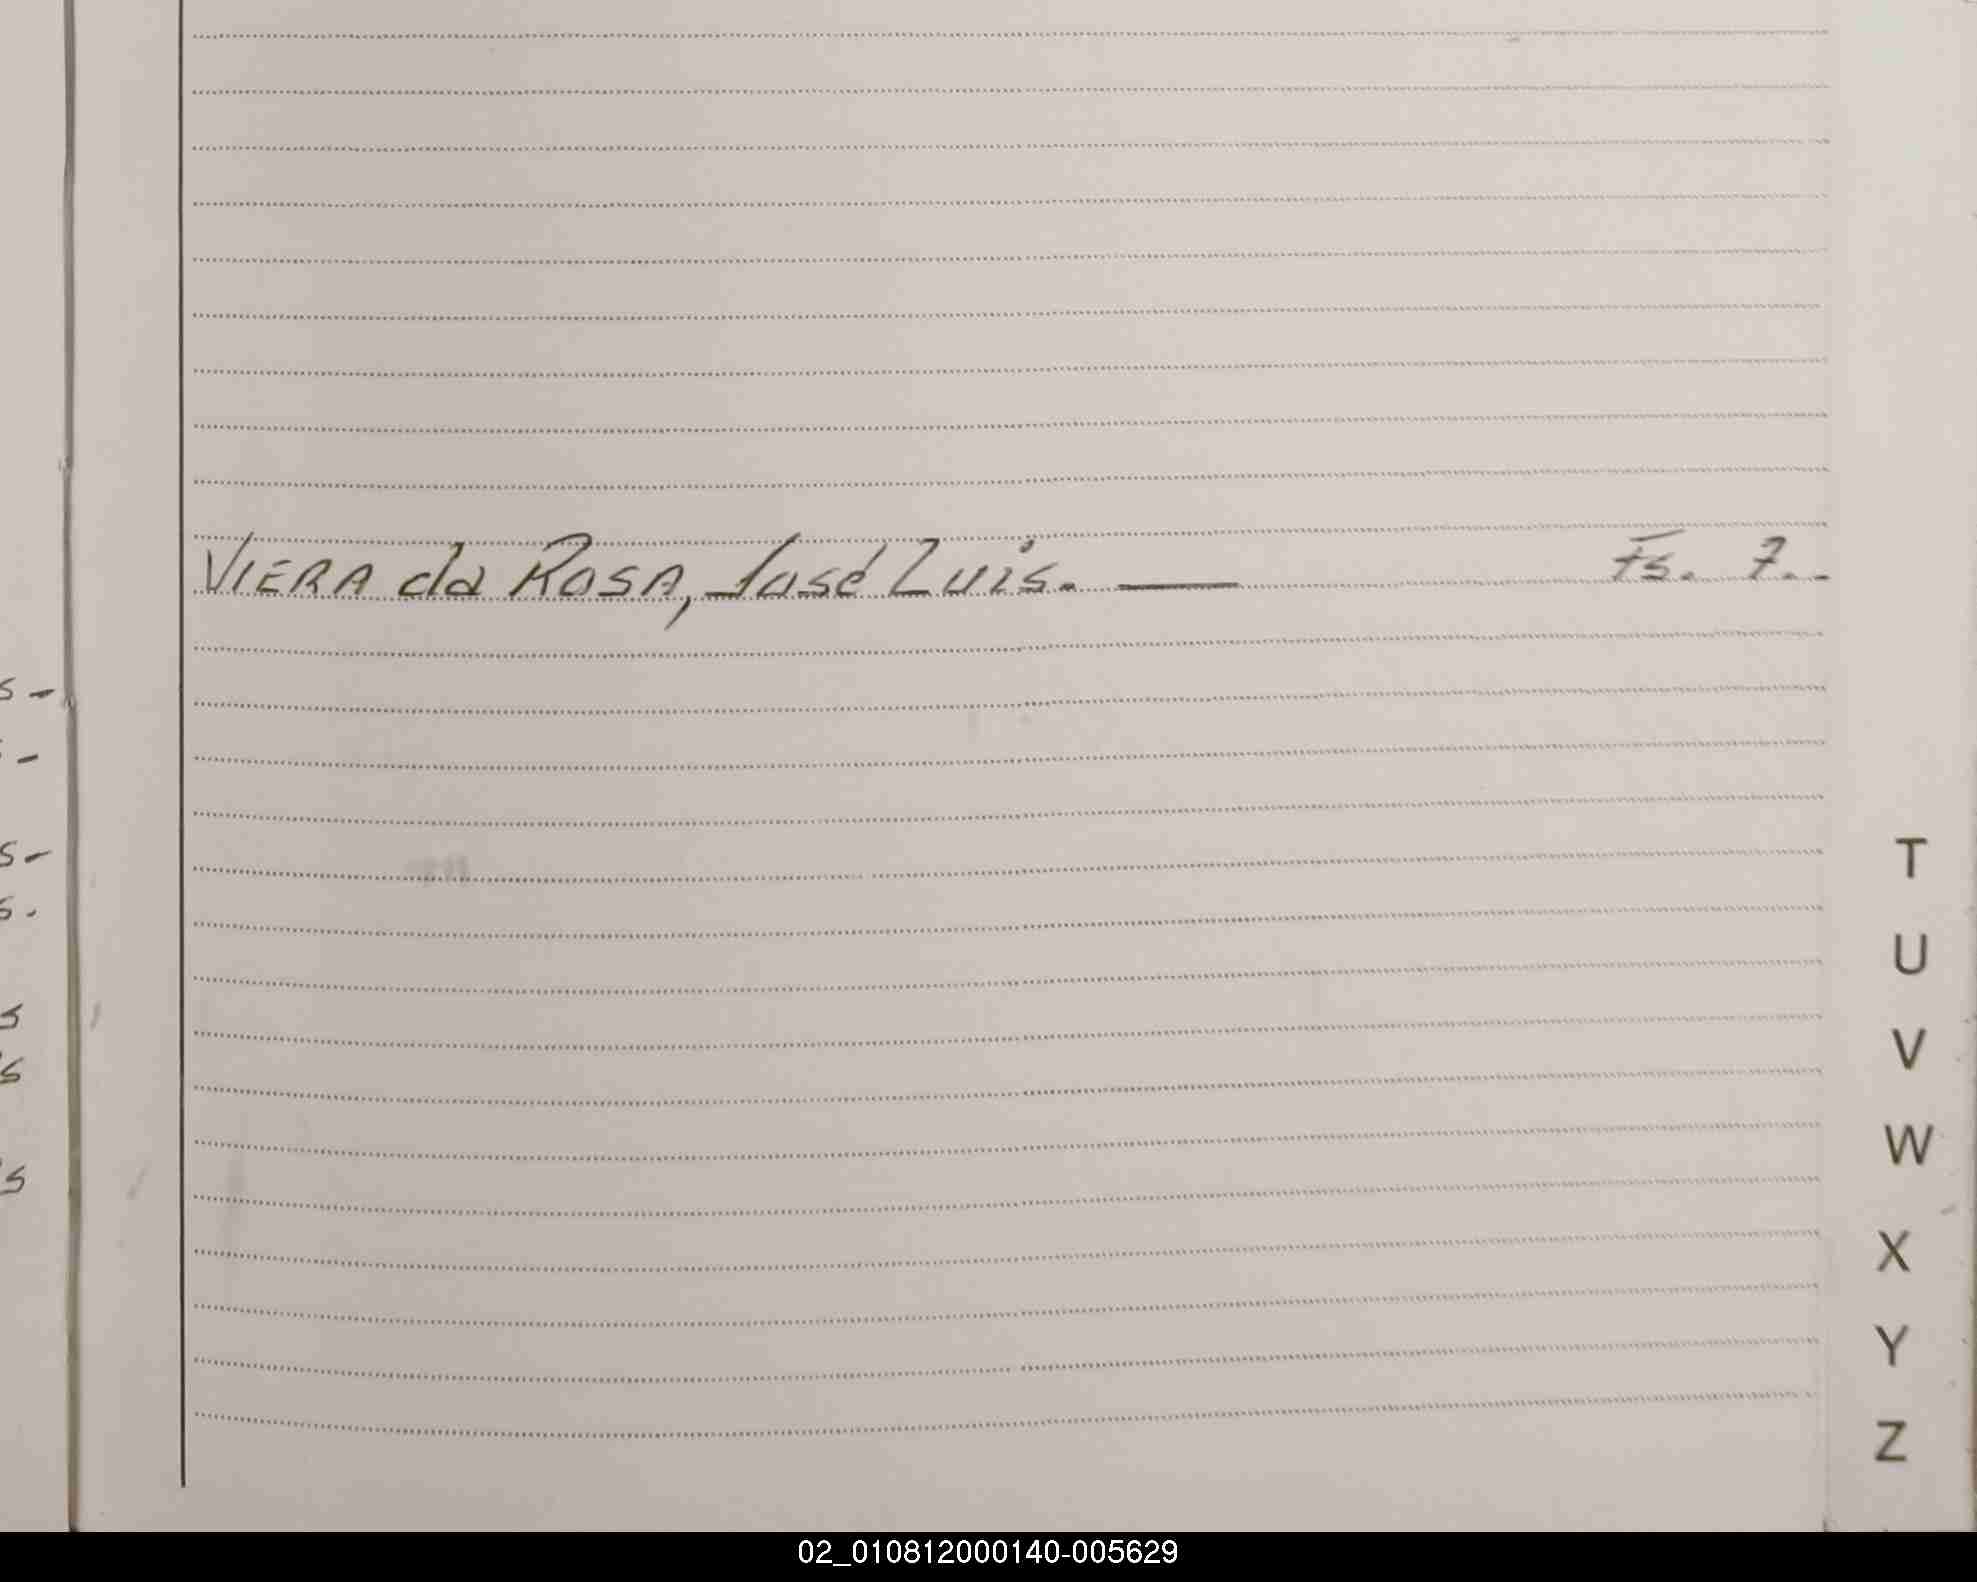 VIERA da ROSA, José Luis. —— Fs. 7.-
T
U
V
W
X
Y
Z
02_010812000140-005629